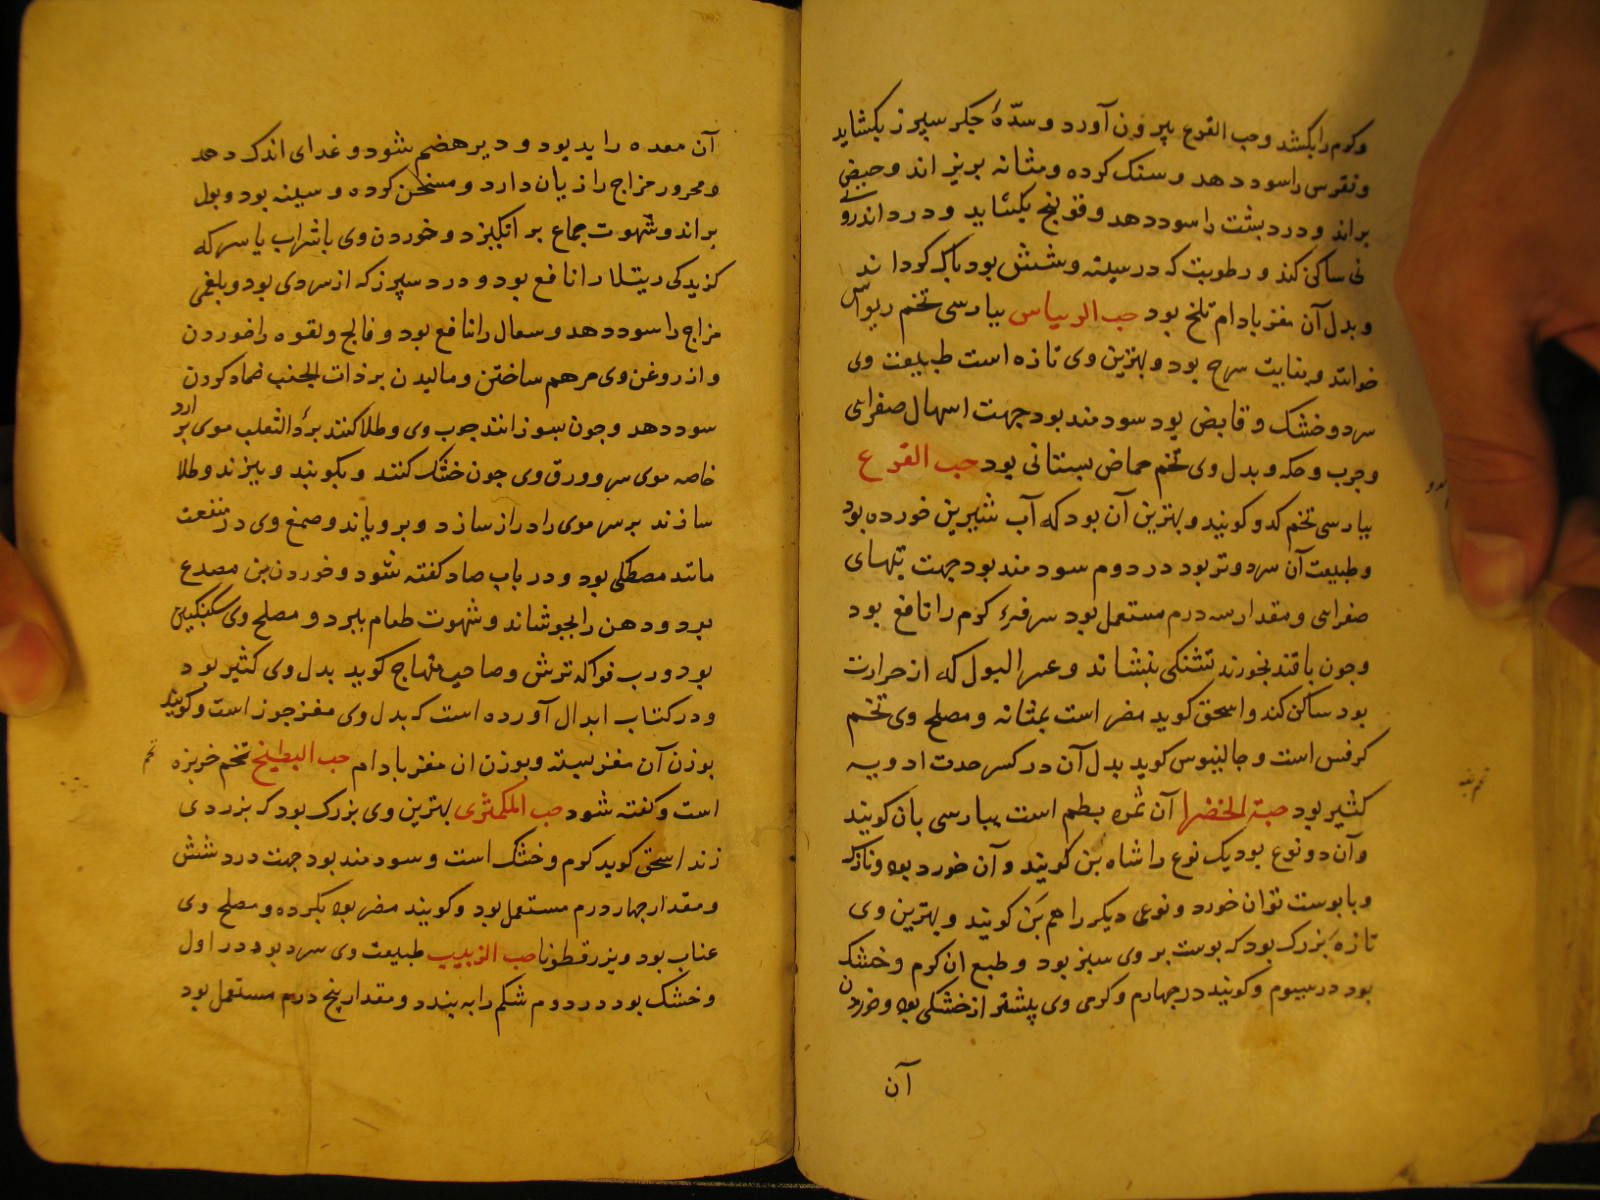 وکرم را بکشد و حب القرع بیرون آورد و سدّهٔ جکر سپرز بکشاید
و نقرس را سود دهد و سنک کرده و مثانه بریزاند و حیض
براند و درد پشت را سود دهد و قولنج بکشاید و درد اندرونی
نی ساکن کند و رطوبت که در سینه و شش بود پاک کرداند
و بدل آن مغز بادام تلخ بود حب الریباس بپارسی تخم ریواس
خوانند و بغایت سرخ بود و بهترین وی تازه است طبیعت وی
سرد و خشک و قابض بود سودمند بود جهت اسهال صفرایی
و جرب و حکه و بدل وی تخم حماض بستانی بود حب القرع
بپارسی تخم کدو کویند و بهترین آن بود که آب شیرین خورده بود
و طبیعت آن سرد و تر بود در دوم سودمند بود جهت تبهای
صفرایی و مقدار سه درم مستعمل بود سرفهٔ کرم را نافع بود
و چون با قند بخورند تشنکی بنشاند و عسر البول که از حرارت
بود ساکن کند و اسحق کوید مضر است بمثانه و مصلح وی تخم
کرفس است و جالینوس کوید بدل آن در کسر حدت ادویه
کثیر بود حبة الخضرا آن ثمره بطم است بپارسی بان کویند
و آن دو نوع بود یک نوع را شاه بن کویند و آن خورد بود و نازک
و با پوست توان خورد و نوعی دیکر را هم بَن کویند و بهترین وی
تازه بزرک بود که پوست بر وی سبز بود و طبع ان کرم و خشک
بود در سیوم و کویند در چهارم و کرمی وی بیشتر از خشکی بود و خوردن
آن
آن معده را بد بود و دیر هضم شود و غدای اندک دهد
و محرور مزاج را زیان دارد و مسخن کرده و سینه بود و بول
براند و شهوت جماع بر انکیزد و خوردن وی با شراب یا سرکه
کزیدکی رتیلا را نافع بود و درد سپرز که از سردی بود و بلغمی
مزاج را سود دهد و سعال را نافع بود و فالج و لقوه را خوردن
و از روغن وی مرهم ساختن و مالیدن بر ذات الجنب ضماد کردن
سود دهد و چون بسوزانند چوب وی و طلا کنند بر داء الثعلب موی بر آرد
خاصه موی سر و ورق وی چون خشک کنند و بکوبند و ببیزند و طلا
سازند بر سر موی را دراز سازد و برویاند و صمغ وی در منفعت
مانند مصطکی بود و در باب صاد کفته شود و خوردن بن مصدع
بود و دهن را بجوشاند و شهوت طعام ببرد و مصلح وی سکنکبین
بود و رب فواکه ترش و صاحب منهاج کوید بدل وی کثیر بود
و در کتاب ابدال آورده است که بدل وی مغز جوز است و کویند
بوزن آن مغز پسته و بوزن ان مغز بادام حب البطیخ تخم خربزه
است و کفته شود حب الکمثری بهترین وی بزرک بود که بزردی
زند اسحق کوید کرم و خشک است و سودمند بود جهت درد شش
و مقدار چهار درم مستعمل بود و کویند مضر بود بکرده و مصلح وی
عناب بود و بزر قطونا حب الزبیب طبیعت وی سرد بود در اول
و خشک بود در دوم شکم را به بندد و مقدار پنج درم مستعمل بود